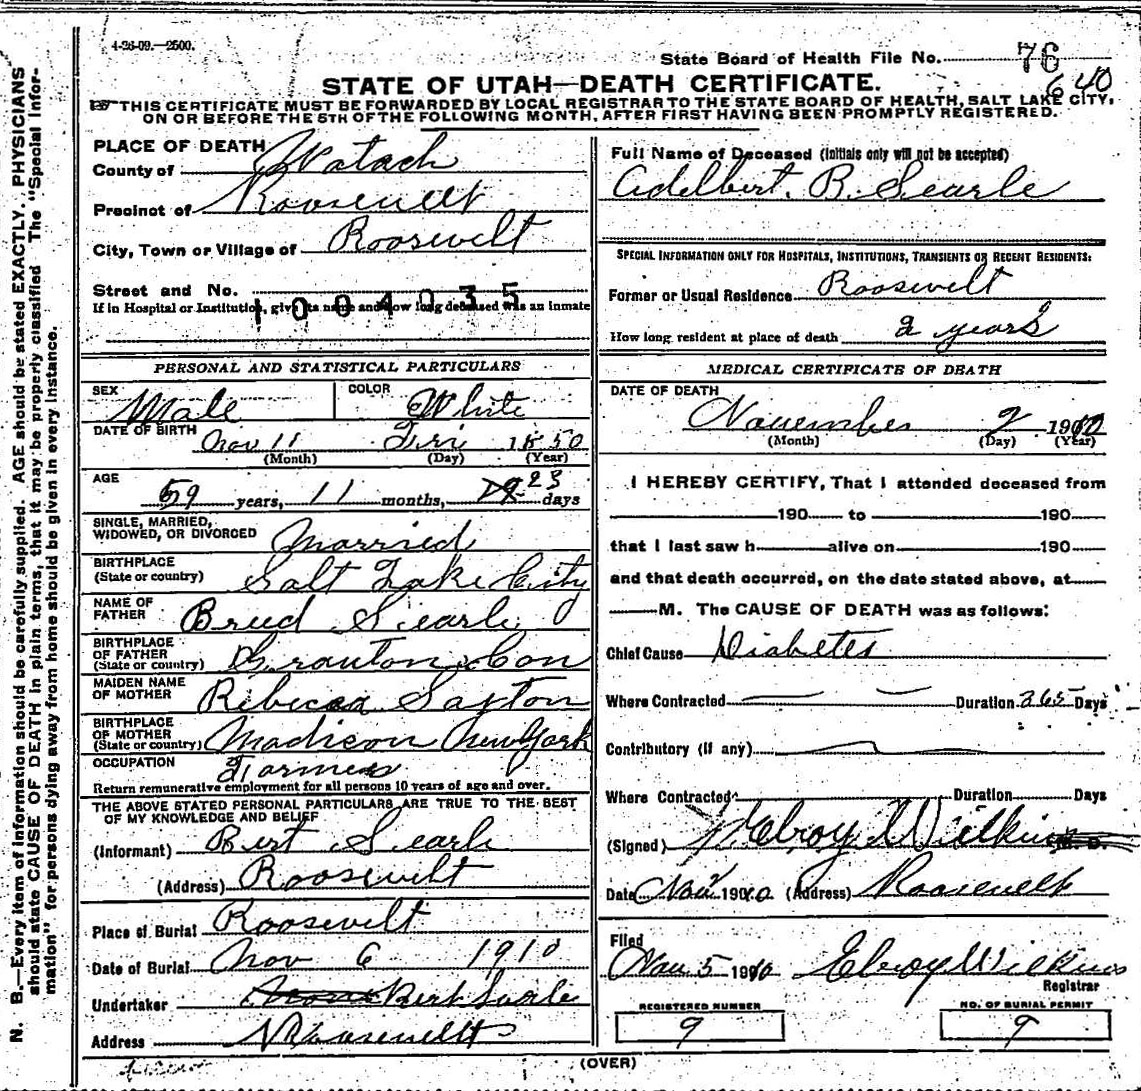 4-26-09.—2500.
State Board of Health File No. 76
640
STATE OF UTAH—DEATH CERTIFICATE.
THIS CERTIFICATE MUST BE FORWARDED BY LOCAL REGISTRAR TO THE STATE BOARD OF HEALTH, SALT LAKE CITY,
ON OR BEFORE THE 5TH OF THE FOLLOWING MONTH, AFTER FIRST HAVING BEEN PROMPTLY REGISTERED.
N. B.—Every item of information should be carefully supplied. AGE should be stated EXACTLY. PHYSICIANS
should state CAUSE OF DEATH in plain terms, that it may be properly classified. The "Special Infor-
mation" for persons dying away from home should be given in every instance.
PLACE OF DEATH
County of Watach
Precinct of Roosevelt
City, Town or Village of Roosevelt
Street and No.
1004035
If in Hospital or Institution, give its name and how long deceased was an inmate
PERSONAL AND STATISTICAL PARTICULARS
SEX Male COLOR White
DATE OF BIRTH Nov 11 Fri 1850
(Month) (Day) (Year)
AGE
59 years, 11 months, 23 days
SINGLE, MARRIED,
WIDOWED, OR DIVORCED Married
BIRTHPLACE
(State or country) Salt Lake City
NAME OF
FATHER Breed Searle
BIRTHPLACE
OF FATHER
(State or country) Granton Con
MAIDEN NAME
OF MOTHER Rebecca Saxton
BIRTHPLACE
OF MOTHER
(State or country) Madison New York
OCCUPATION Farmer
Return remunerative employment for all persons 10 years of age and over.
THE ABOVE STATED PERSONAL PARTICULARS ARE TRUE TO THE BEST
OF MY KNOWLEDGE AND BELIEF
(Informant) Bert Searle
(Address) Roosevelt
Place of Burial Roosevelt
Date of Burial Nov 6 1910
Undertaker Bert Searle
Address Roosevelt
Full Name of Deceased (Initials only will not be accepted)
Adelbert. B. Searle
SPECIAL INFORMATION ONLY FOR HOSPITALS, INSTITUTIONS, TRANSIENTS OR RECENT RESIDENTS:
Former or Usual Residence Roosevelt
How long resident at place of death 2 years
MEDICAL CERTIFICATE OF DEATH
DATE OF DEATH
November 2 1910
(Month) (Day) (Year)
I HEREBY CERTIFY, That I attended deceased from
190 to 190
that I last saw h alive on 190
and that death occurred, on the date stated above, at
M. The CAUSE OF DEATH was as follows:
Chief Cause Diabetes
Where Contracted Duration 365 Days
Contributory (if any)
Where Contracted Duration Days
(Signed) J. Elroy Wilkins M. D.
Date Nov 1910 (Address) Roosevelt
Filed
Nov 5 1910 Elroy Wilkins
Registrar
REGISTERED NUMBER
9
NO. OF BURIAL PERMIT
9
(OVER)